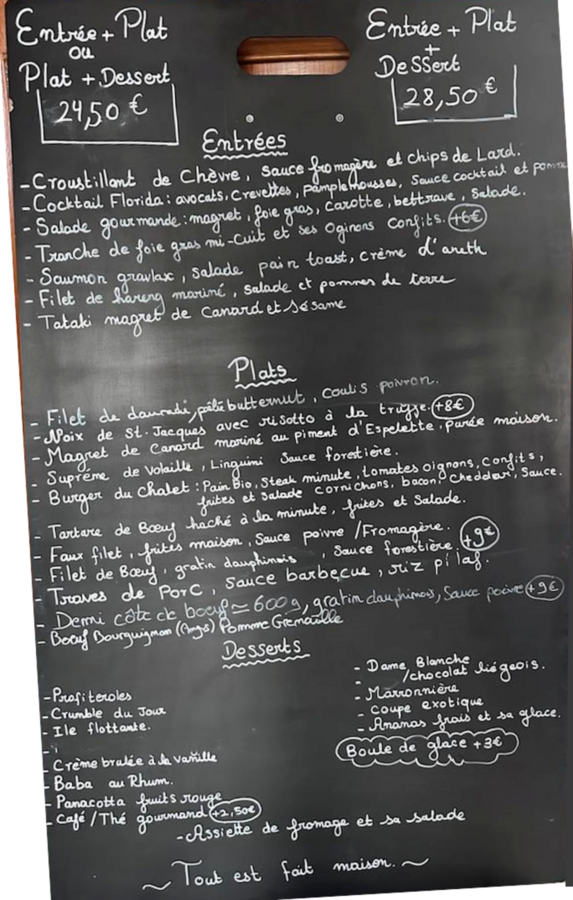 Entrée + Plat
ou
Plat + Dessert
24,50 €
Entrée + Plat
+
Dessert
28,50 €
Entrées
- Croustillant de Chèvre, sauce fromagère et chips de Lard.
- Cocktail Florida : avocats, Crevettes, pamplemousses, sauce cocktail et pomme
- Salade gourmande : magret, foie gras, carotte, bettrave, salade.
- Tranche de foie gras mi-cuit et ses Oginons Confits. +6€
- Saumon gravlax, salade pain toast, crème d'aneth
- Filet de hareng mariné, salade et pommes de terre
- Tataki magret de Canard et sésame
Plats
- Filet de daurade, purée butternut, coulis poivron.
- Noix de St-Jacques avec risotto à la truffe. +8€
- Magret de Canard mariné au piment d'Espelette, purée maison.
- Suprême de Volaille, Linguini Sauce forestière.
- Burger du Chalet : Pain Bio, Steak minute, tomates oignons, confits,
frites et salade cornichons, bacon, Cheddar, Sauce.
- Tartare de Bœuf haché à la minute, frites et Salade.
- Faux filet, frites maison, sauce poivre / Fromagère.
- Filet de Bœuf, gratin dauphinois, sauce forestière +9€
- Traves de Porc, sauce barbecue, riz pilaf.
- Demi côte de bœuf ≃ 600g, gratin dauphinois, Sauce poivre +9€
- Bœuf Bourguignon Pomme Grenaille
Desserts
- Profiteroles
- Crumble du Jour
- Ile flottante.
-
- Crème brulée à la vanille
- Baba au Rhum.
- Panacotta fruits rouge
- Café / Thé gourmand +2,50€
- Dame Blanche
- / chocolat liégeois.
- Marronnière
- Coupe exotique
- Ananas frais et sa glace.
Boule de glace +3€
- Assiette de fromage et sa salade
~ Tout est fait maison. ~